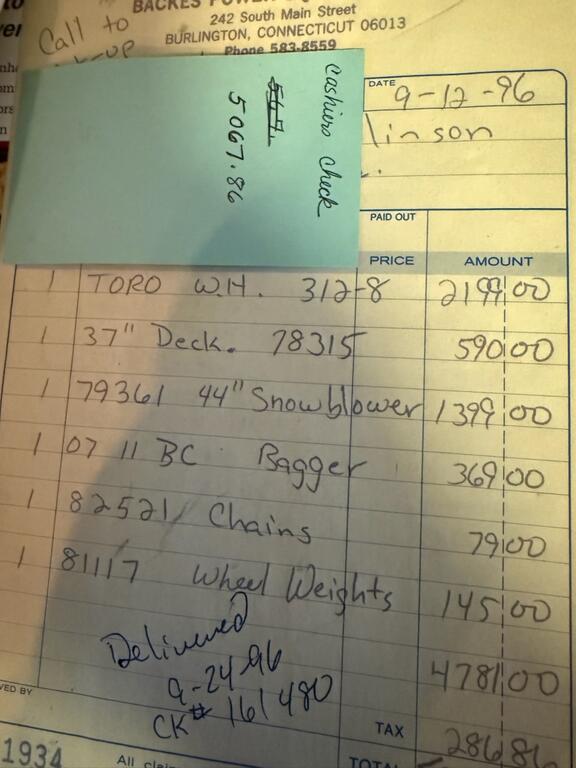 Call to
242 South Main Street
BURLINGTON, CONNECTICUT 06013
Phone 583-8559
Cashiers check
5067.86
DATE 9-12-96
linson
PAID OUT
PRICE AMOUNT
1 TORO W.H. 312-8 2199 00
1 37" Deck. 78315 590 00
1 79361 44" Snowblower 1399 00
1 07 11 BC Bagger 369 00
1 82521 Chains 79 00
1 81117 Wheel Weights 145 00
4781 00
Delivered
9-24-96
CK# 161480
TAX 286 86
1934
All
TOTAL